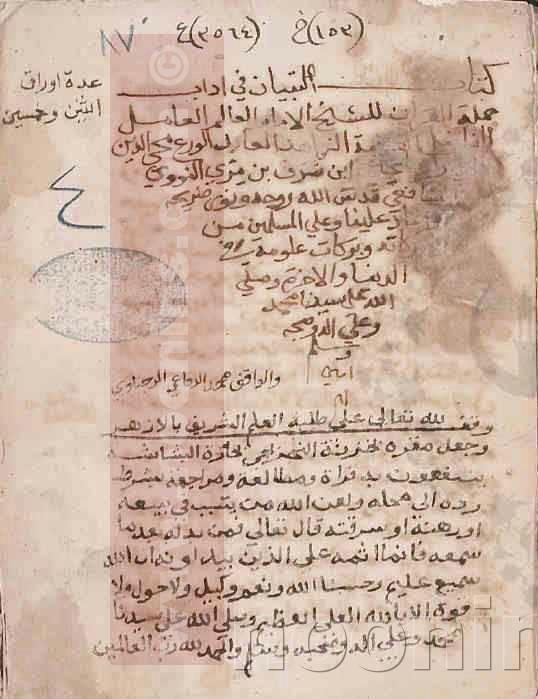 (١٥٣) خ (٣٥٦٤) ع
١٧
عدة اوراق
اثنين وخمسين
٤
كتاب التبيان في اداب
حملة القران للشيخ الامام العالم العامل
الزاهد العارف الورع محي الدين
ابن شرف بن مري النووي
الشافعي قدس الله روحه ونور ضريحه
علينا وعلي المسلمين من
وبركات علومه في
الدنيا والاخرة وصلي
الله علي سيدنا محمد
وعلي اله وصحبه
وسلم
امين
والواقف
وقف لله تعالي علي طلبة العلم الشريف بالازهر
وجعل مقره بخزينة بحارة
ينتفعون به قراة ومطالعة ومراجعة بشرط
رده الي محله ولعن الله من يتسبب في بيعه
اورهنه او سرقته قال تعالي فمن بدله بعدما
سمعه فانما اثمه علي الذين يبدلونه ان الله
سميع عليم وحسبنا الله ونعم وكيل ولا حول ولا
قوة الا بالله العلي العظيم وصلي الله علي سيدنا
محمد وعلي اله وصحبه وسلم والحمد لله رب العالمين
noonin